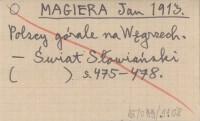 MAGIERA Jan 1913.
Polscy górale na Węgrzech.
— Świat Słowiański
( ) s. 475-478.